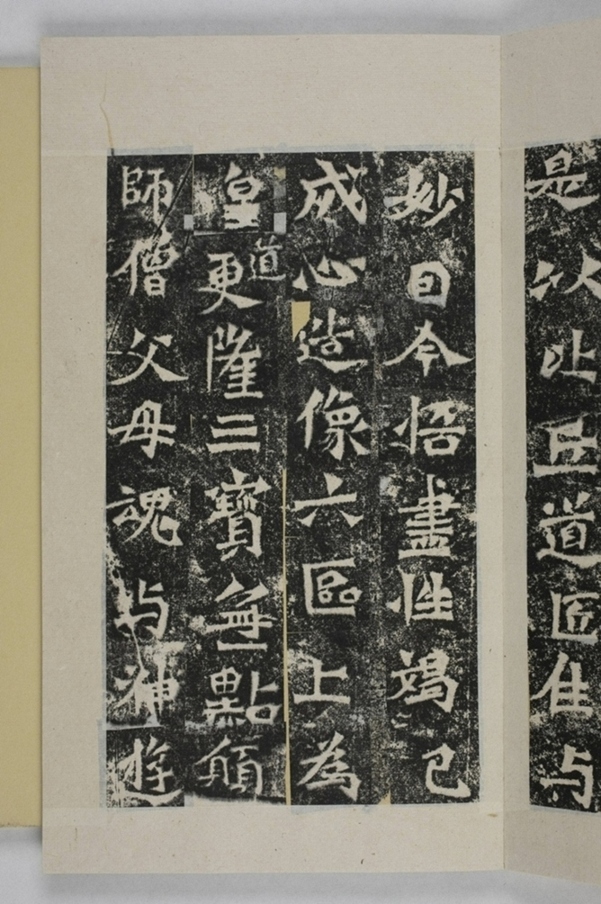 是以比丘道匠住与
妙囙今悟盡性竭己
成心造像六區上為
皇道更隆三寶無點願
師僧父母魂与神遊